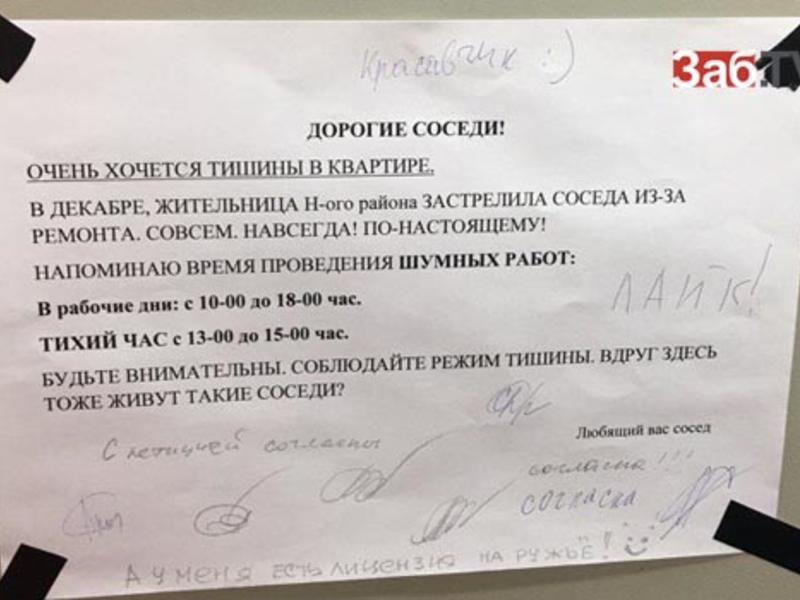 Красавчик :)
Заб.TV
ДОРОГИЕ СОСЕДИ!
ОЧЕНЬ ХОЧЕТСЯ ТИШИНЫ В КВАРТИРЕ.
В ДЕКАБРЕ, ЖИТЕЛЬНИЦА Н-ого района ЗАСТРЕЛИЛА СОСЕДА ИЗ-ЗА
РЕМОНТА. СОВСЕМ. НАВСЕГДА! ПО-НАСТОЯЩЕМУ!
НАПОМИНАЮ ВРЕМЯ ПРОВЕДЕНИЯ ШУМНЫХ РАБОТ:
ЛАЙК!
В рабочие дни: с 10-00 до 18-00 час.
ТИХИЙ ЧАС с 13-00 до 15-00 час.
БУДЬТЕ ВНИМАТЕЛЬНЫ. СОБЛЮДАЙТЕ РЕЖИМ ТИШИНЫ. ВДРУГ ЗДЕСЬ
ТОЖЕ ЖИВУТ ТАКИЕ СОСЕДИ?
Любящий вас сосед
С петицией согласны
согласна!!!
согласна
А у меня есть лицензия на ружьё!